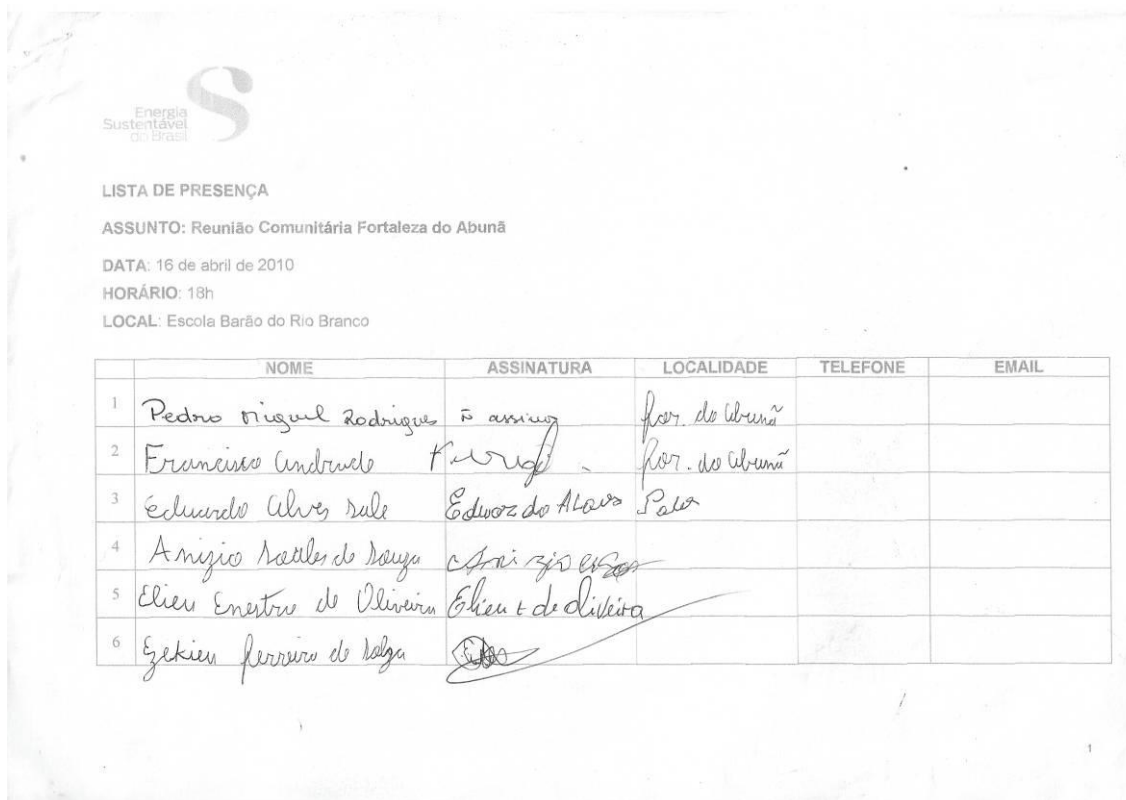 Energia
Sustentável
do Brasil
LISTA DE PRESENÇA
ASSUNTO: Reunião Comunitária Fortaleza do Abunã
DATA: 16 de abril de 2010
HORÁRIO: 18h
LOCAL: Escola Barão do Rio Branco
NOME ASSINATURA LOCALIDADE TELEFONE EMAIL
1 Pedro Miguel Rodrigues ñ assinou for. do abunã
2 Francisco Andrade for. do abunã
3 Eduardo Alves Eduardo
4 Anizio de Souza
5 Elieu de Oliveira Elieu E de Oliveira
6 Ezekieu ferreira de
1